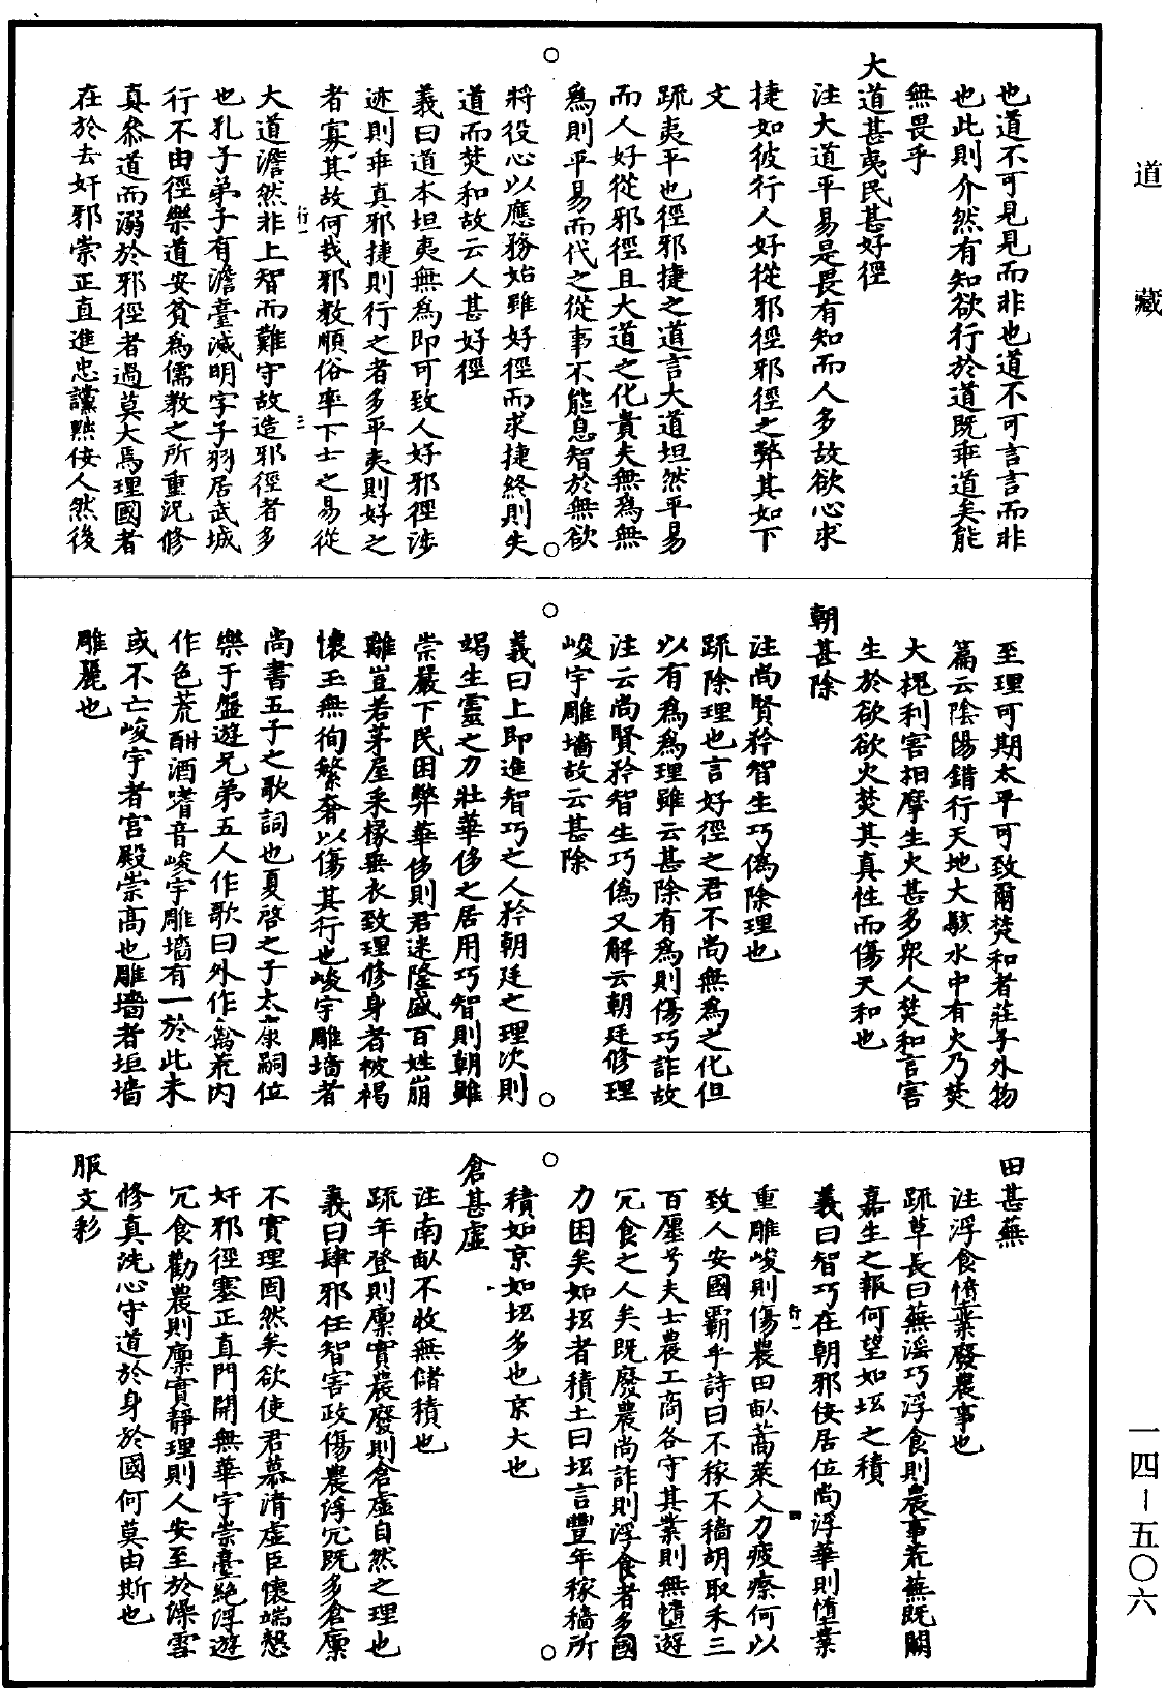 道藏
也道不可見見而非也道不可言言而非
也此則介然有知欲行於道既乖道矣能
無畏乎
大道甚夷民甚好徑
注大道平易是畏有知而人多故欲心求
捷如彼行人好從邪徑邪徑之弊其如下
文
疏夷平也徑邪捷之道言大道坦然平易
而人好從邪徑且大道之化貴夫無為無
為則平易而代之從事不能息智於無欲
將役心以應務始雖好徑而求捷終則失
道而焚和故云人甚好徑
義曰道本坦夷無為即可致人好邪徑涉
迹則乖真邪捷則行之者多平夷則好之
者寡其故何哉邪教順俗率下士之易從
大道澹然非上智而難守故造邪徑者多
也孔子弟子有澹臺滅明字子羽居武城
行不由徑樂道安貧為儒教之所重況修
真叅道而溺於邪徑者過莫大焉理國者
在於去奸邪崇正直進忠讜黜佞人然後
至理可期太平可致爾焚和者莊子外物
篇云陰陽錯行天地大駭水中有火乃焚
大槐利害相摩生火甚多眾人焚和言害
生於欲欲火焚其真性而傷天和也
朝甚除
注尚賢矜智生巧偽除理也
疏除理也言好徑之君不尚無為之化但
以有為為理雖云甚除有為則傷巧詐故
注云尚賢矜智生巧偽又解云朝廷修理
峻宇雕墻故云甚除
義曰上即進智巧之人矜朝廷之理次則
竭生靈之力壯華侈之居用巧智則朝雖
崇嚴下民困弊華侈則君迷隆盛百姓崩
離豈若茅屋采椽垂衣致理修身者被褐
懷玉無徇繁奢以傷其行也峻宇雕墻者
尚書五子之歌詞也夏啓之子太康嗣位
樂于盤遊兄弟五人作歌曰外作禽荒內
作色荒酣酒嗜音峻宇雕墻有一於此未
或不亡峻宇者宮殿崇高也雕墻者垣墻
雕麗也
田甚蕪
注浮食惰業廢農事也
疏草長曰蕪滛巧浮食則農事荒蕪既闕
嘉生之報何望如坻之積
義曰智巧在朝邪佞居位尚浮華則墮業
重雕峻則傷農田畝蒿萊人力疲瘵何以
致人安國霸乎詩曰不稼不穡胡取禾三
百廛兮夫士農工商各守其業則無墮遊
冗食之人矣既廢農尚詐則浮食者多國
力困矣如坻者積土曰坻言豐年稼穡所
積如京如坻多也京大也
倉甚虛
注南畝不收無儲積也
疏年登則廩實農廢則倉虛自然之理也
義曰肆邪任智害政傷農浮冗既多倉廩
不實理固然矣欲使君慕清虛臣懷端慤
奸邪徑塞正直門開無華宇崇臺絕浮遊
冗食勸農則廩實靜理則人安至於澡雪
修真洗心守道於身於國何莫由斯也
服文彩
一四－五〇六